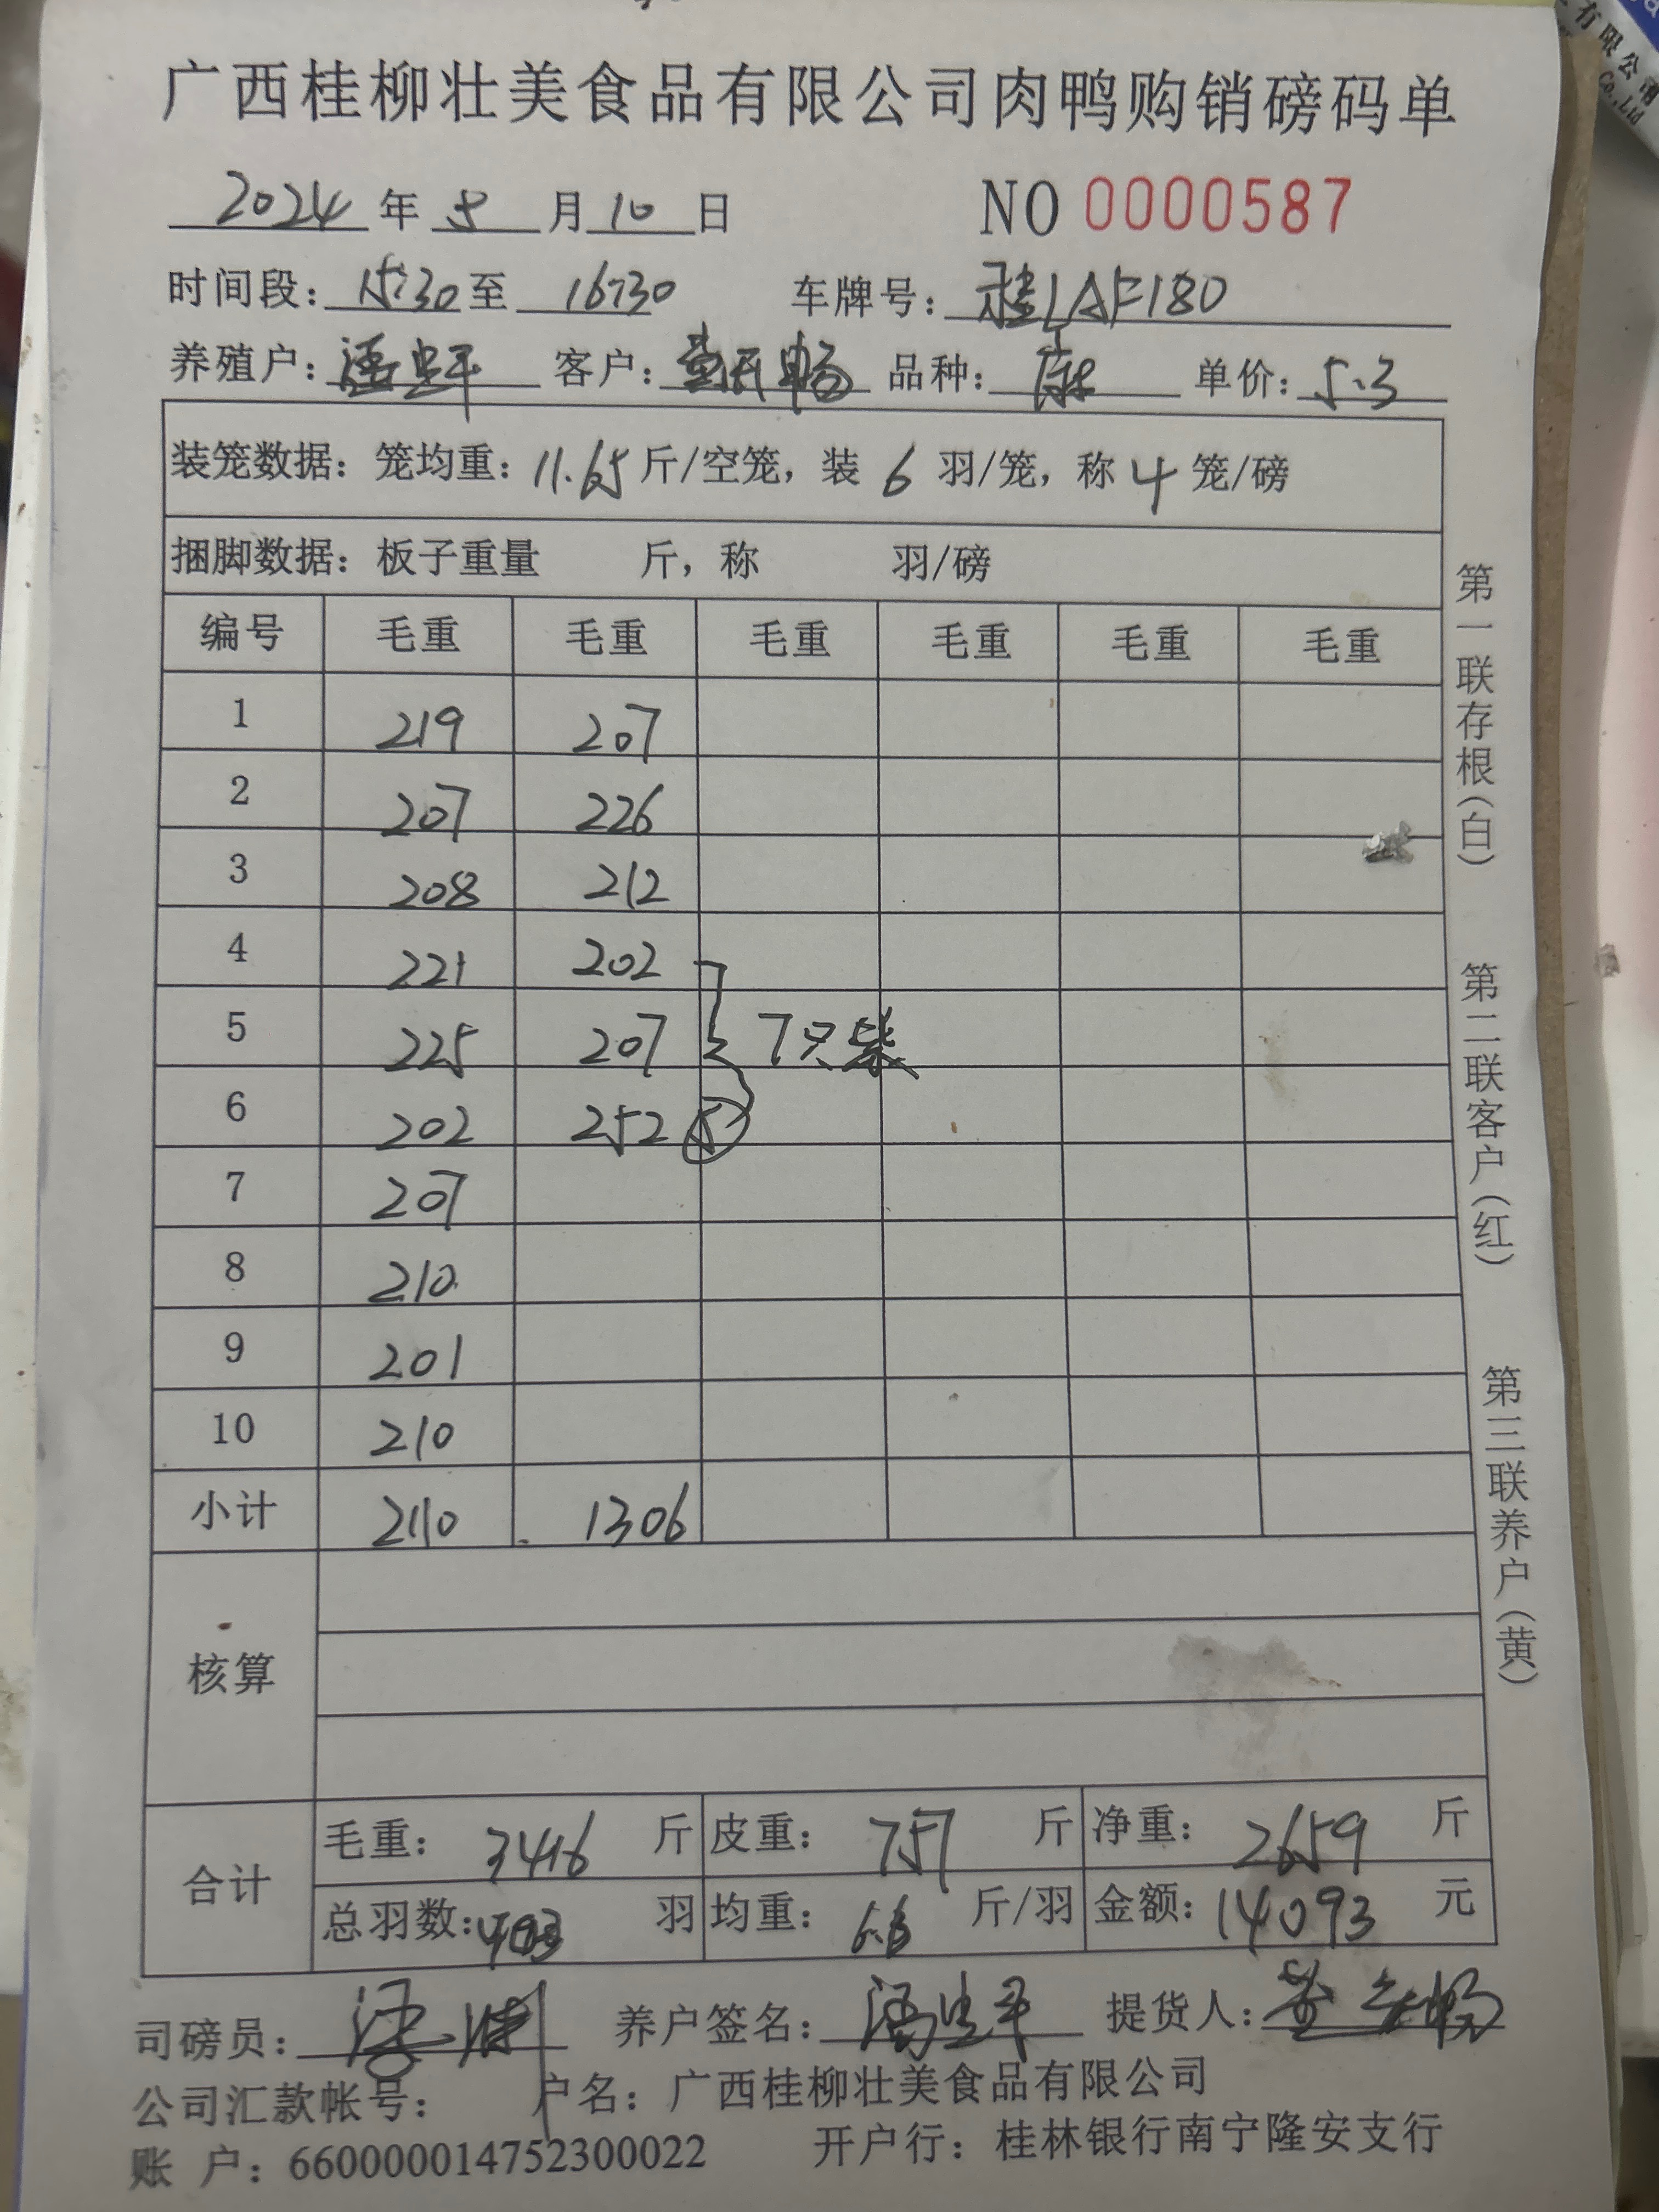 有限公司南
Co.,Ltd
广西桂柳壮美食品有限公司肉鸭购销磅码单
2024 年 8 月 10 日 NO 0000587
时间段: 15:30 至 16:30 车牌号: 桂LAF180
养殖户: 客户: 黄 畅 品种: 康 单价: 5.3
装笼数据: 笼均重: 11.65 斤/空笼, 装 6 羽/笼, 称 4 笼/磅
捆脚数据: 板子重量 斤, 称 羽/磅
编号 毛重 毛重 毛重 毛重 毛重 毛重
1 219 207
2 207 226
3 208 212
4 221 202
5 225 207 7只装
6 202 252 5
7 207
8 210
9 201
10 210
小计 2110 1306
核算
合计
毛重: 3416 斤 皮重: 757 斤 净重: 2659 斤
总羽数: 403 羽 均重: 6.6 斤/羽 金额: 14093 元
司磅员: 养户签名: 提货人: 黄 畅
公司汇款帐号: 户名: 广西桂柳壮美食品有限公司
账 户: 660000014752300022 开户行: 桂林银行南宁隆安支行
第一联存根(白) 第二联客户(红) 第三联养户(黄)